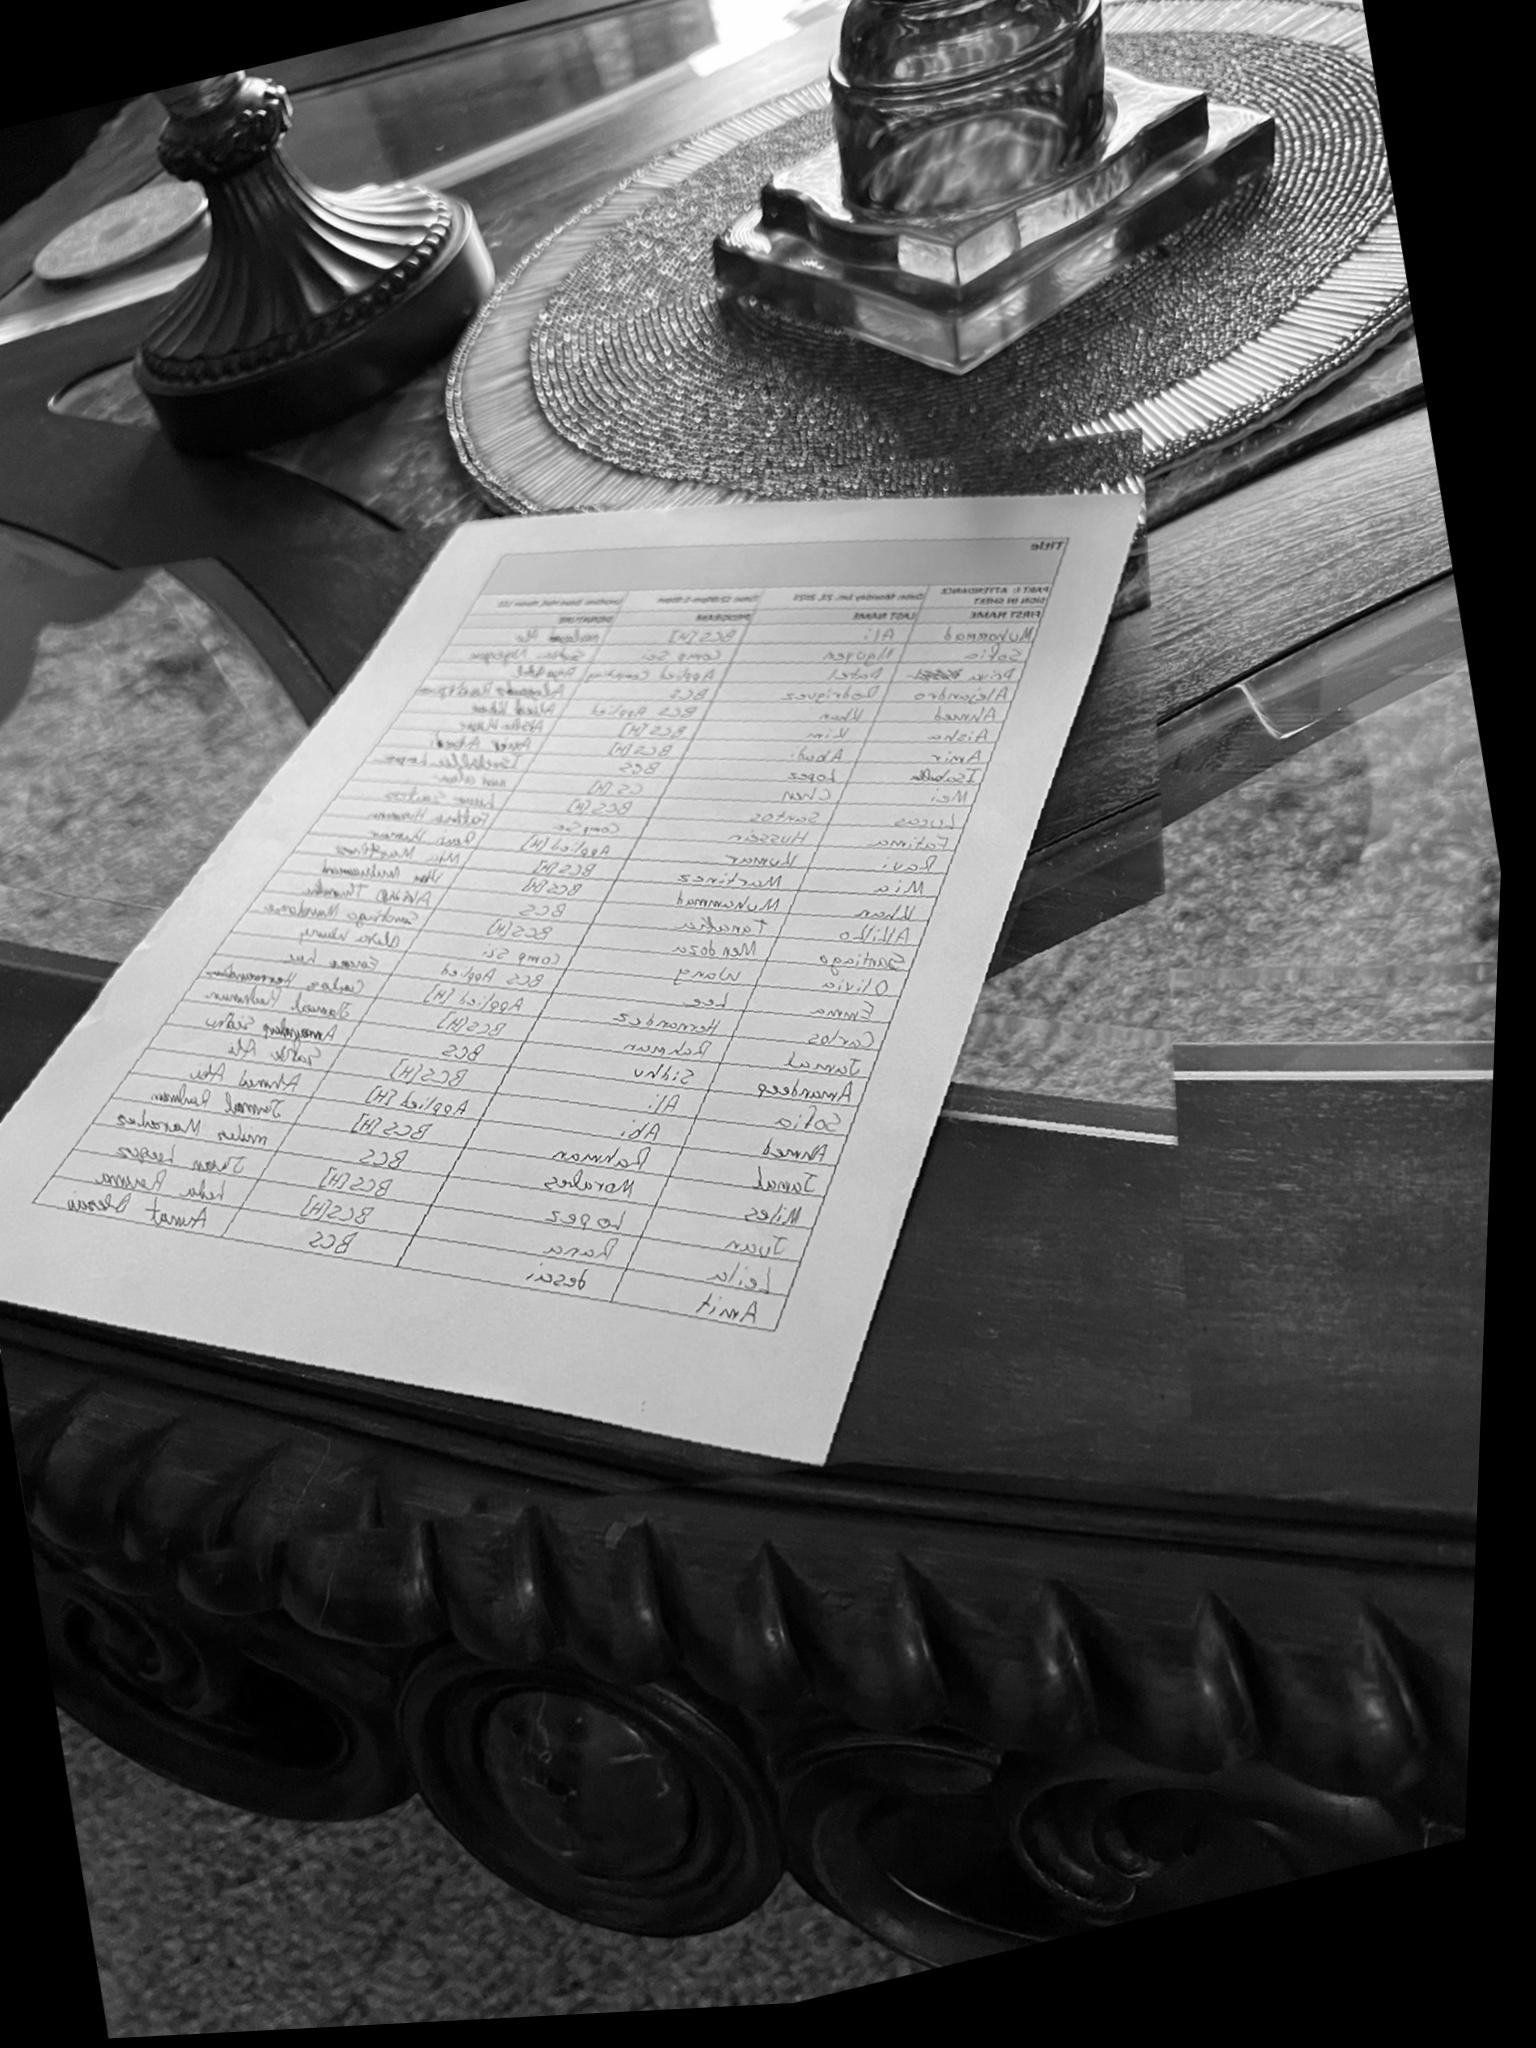 Title
PART I: ATTENDANCE SIGN IN SHEET Date: Monday Jan. 23, 2023
FIRST NAME LAST NAME PROGRAM SIGNATURE
Muhammad Ali BCS[H]
Sofia Nguyen Comp Sci Sofia Nguyen
Priya Patel Applied Computing
Alejandro Rodriguez BCS Alejandro Rodriguez
Ahmed Khan BCS Applied Ahmed Khan
Aisha Kim BCS[H]
Amir Abadi BCS[H] Amir Abadi
Isabella Lopez BCS Isabella Lopez
Mei Chen CS[H]
Lucas Santos BCS[H] Lucas Santos
Fatima Hussein CompSc Fatima Hussein
Ravi Kumar Applied[H] Ravi Kumar
Mia Martinez BCS[H] Mia Martinez
Khan Muhammad BCS[H] Khan Muhammad
Tanaka BCS
Santiago Mendoza BCS[H] Santiago Mendoza
Olivia Wang Comp Sci Olivia Wang
Emma Lee BCS Applied Emma Lee
Carlos Hernandez Applied[H] Carlos Hernandez
Jamal Rahman BCS[H] Jamal Rahman
Amandeep Sidhu BCS Amandeep Sidhu
Sofia Ali BCS[H] Sofia Ali
Ahmed Abi Applied[H] Ahmed Abi
Jamal Rahman BCS[H] Jamal Rahman
Miles Morales BCS miles Morales
Juan Lopez BCS[H] Juan Lopez
Leila Rana BCS[H] Leila
Amit desai BCS